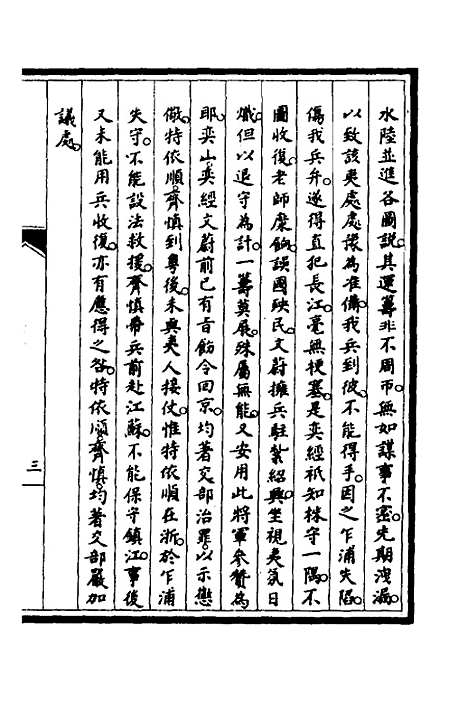 水陸並進各圖說其運籌非不周帀無如謀事不密先期洩漏
以致該夷處處豫為准備我兵到彼不能得手因之乍浦失陷
傷我兵弁遂得直犯長江毫無梗塞是奕經祇知株守一隅不
圖收復老師糜餉誤國殃民文蔚擁兵駐紮紹興坐視夷氛日
熾但以退守為計一籌莫展殊屬無能又安用此將軍參贊為
耶奕山奕經文蔚前已有旨飭令回京均著交部治罪以示懲
儆特依順齊慎到粵後未與夷人接仗惟特依順在浙於乍浦
失守不能設法救援齊慎帶兵前赴江蘇不能保守鎮江事後
又未能用兵收復亦有應得之咎特依順齊慎均著交部嚴加
議處
三